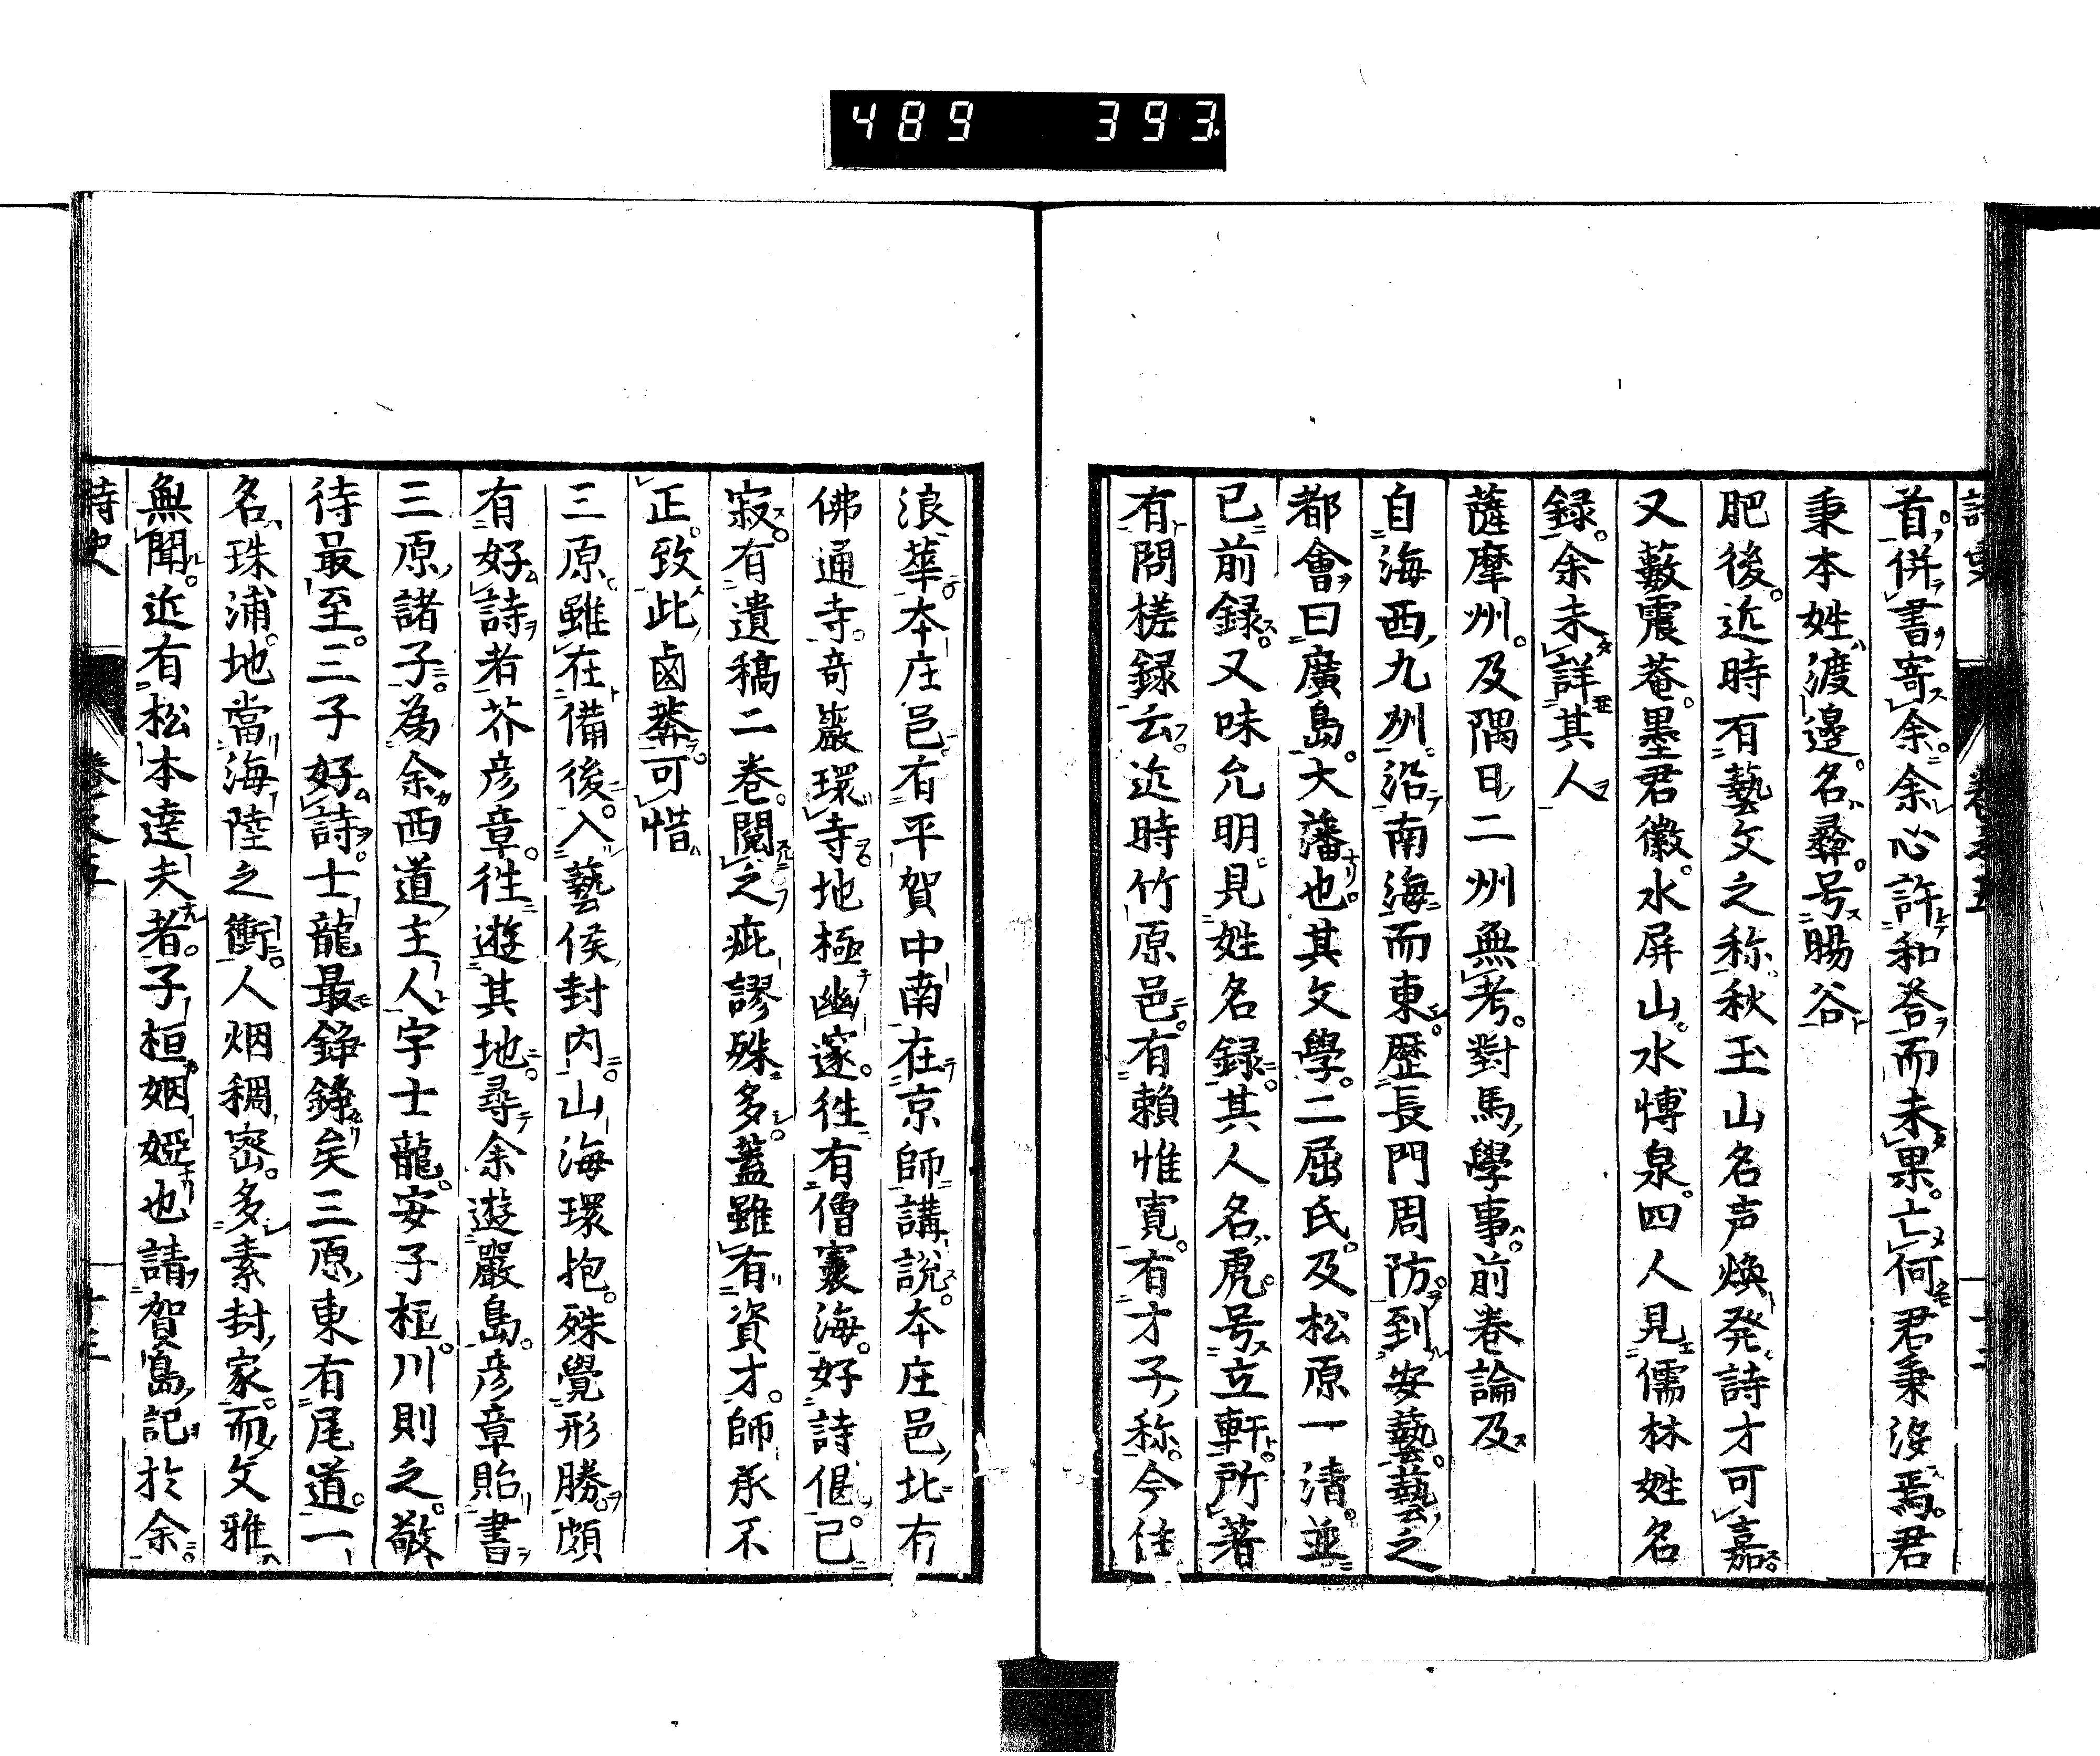 489 393
首併書寄余余心許和荅而未果亡何君秉沒焉君
秉本姓渡邊名彝号暘谷
肥後近時有藝文之称秋玉山名声煥発詩才可嘉
又藪震菴墨君徽水屏山水博泉四人見儒林姓名
録余未詳其人
薩摩州及隅日二州無考對馬學事前巻論及
自海西九州沿南海而東歴長門周防到安藝藝之
都會曰廣島大藩也其文學二屈氏及松原一清並
已前録又味允明見姓名録其人名虎号立軒所著
有問槎録云近時竹原邑有頼惟寛有才子称今住
浪華本庄邑有平賀中南在京師講説本庄邑北有
佛通寺竒巖環寺地極幽邃徃有僧寰海好詩偈已
寂有遺稿二巻閲之疵謬殊多蓋雖有資才師承不
正致此鹵莽可惜
三原雖在備後入藝侯封内山海環抱殊覺形勝頗
有好詩者芥彦章徃遊其地尋余遊嚴島彦章貽書
三原諸子為余西道主人字士龍安子桓川則之敬
待最至三子好詩士龍最錚錚矣三原東有尾道一
名珠浦地當海陸之衝人烟稠密多素封家而文雅
無聞近有松本逹夫者子桓姻婭也請賀島記於余
詩史 巻之五